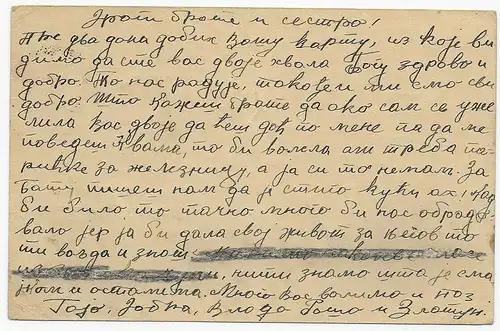 Драги брате и сестро!
Пре два дана добих вашу карту, из које ви
димо да сте вас двоје хвала Богу здраво и
добро. То нас радује, такође и ми смо сви
добро. Што кажеш брате да ако сам се уже
лила вас двоје да ћеш доћ по мене па да ме
поведеш к вама, то би волела али треба па
рице за железницу, а ја си то немам. За
Бату пишеш нам да је стиго кући ах! кад
би било то тачно много би нас обрадо
вало јер ја би дала свој живот за његов то
ти возда и знаш.
нити знамо шта је сма
јом и осталима. Много вас волимо и поз
Гојо, Јобка, Влада и Златун.